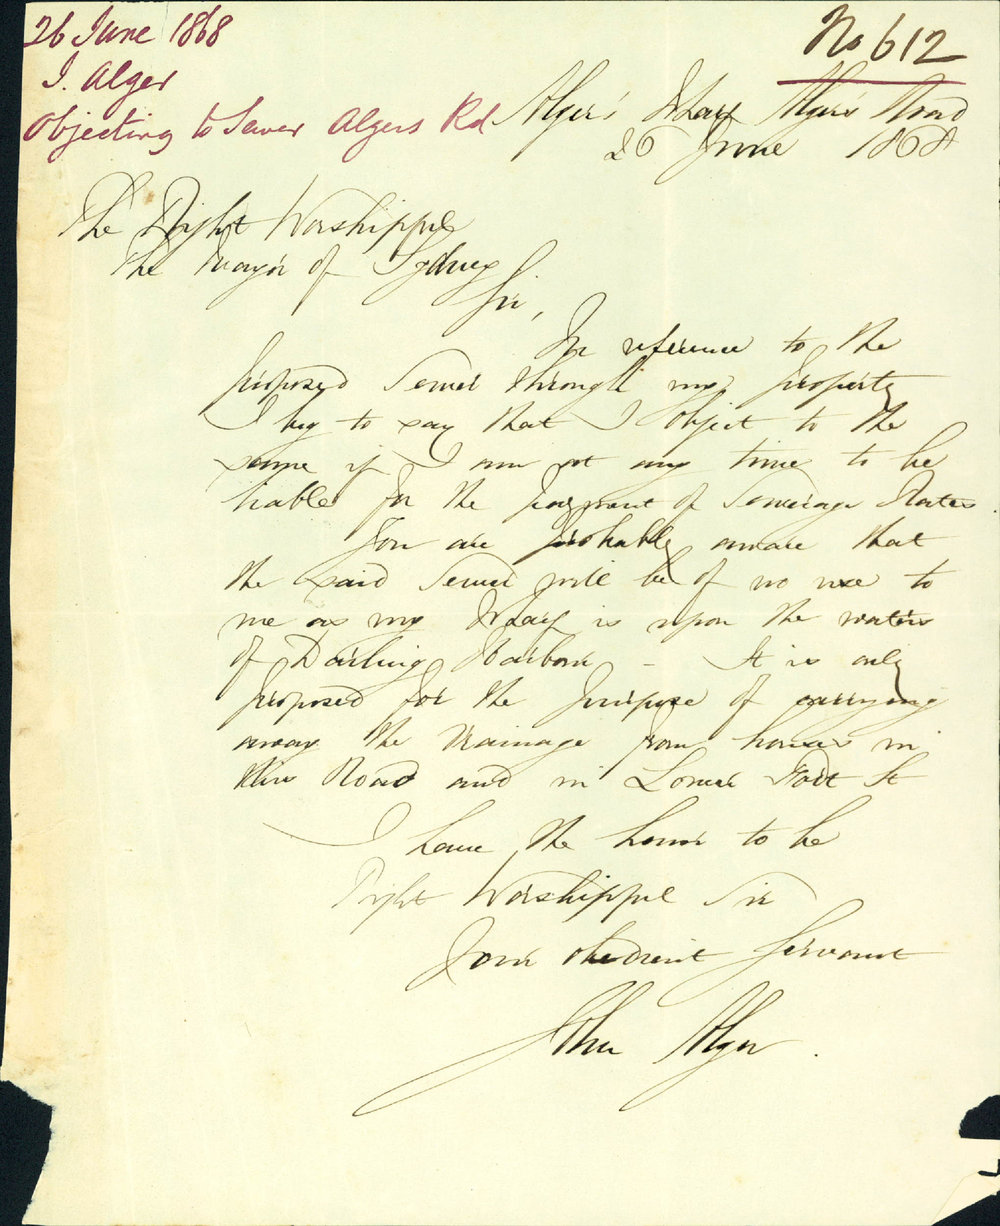 26 June 1868
J. Alger
Objecting to Sewer Algers Rd
No 612
Alger's Wharf Alger's Road
26 June 1868
The Right Worshippful
The Mayor of Sydney
Sir,
In reference to the
proposed Sewer through my property
I beg to say that I object to the
same if I am at any time to be
liable for the payment of Sewerage Rates.
You are probably aware that
the said Sewer will be of no use to
me as my Wharf is upon the waters
of Darling Harbour - It is only
proposed for the purpose of carrying
away the drainage from houses in
this Road and in Lower Fort St
I have the honor to be
Right Worshippful Sir
Your obedient Servant
John Alger.